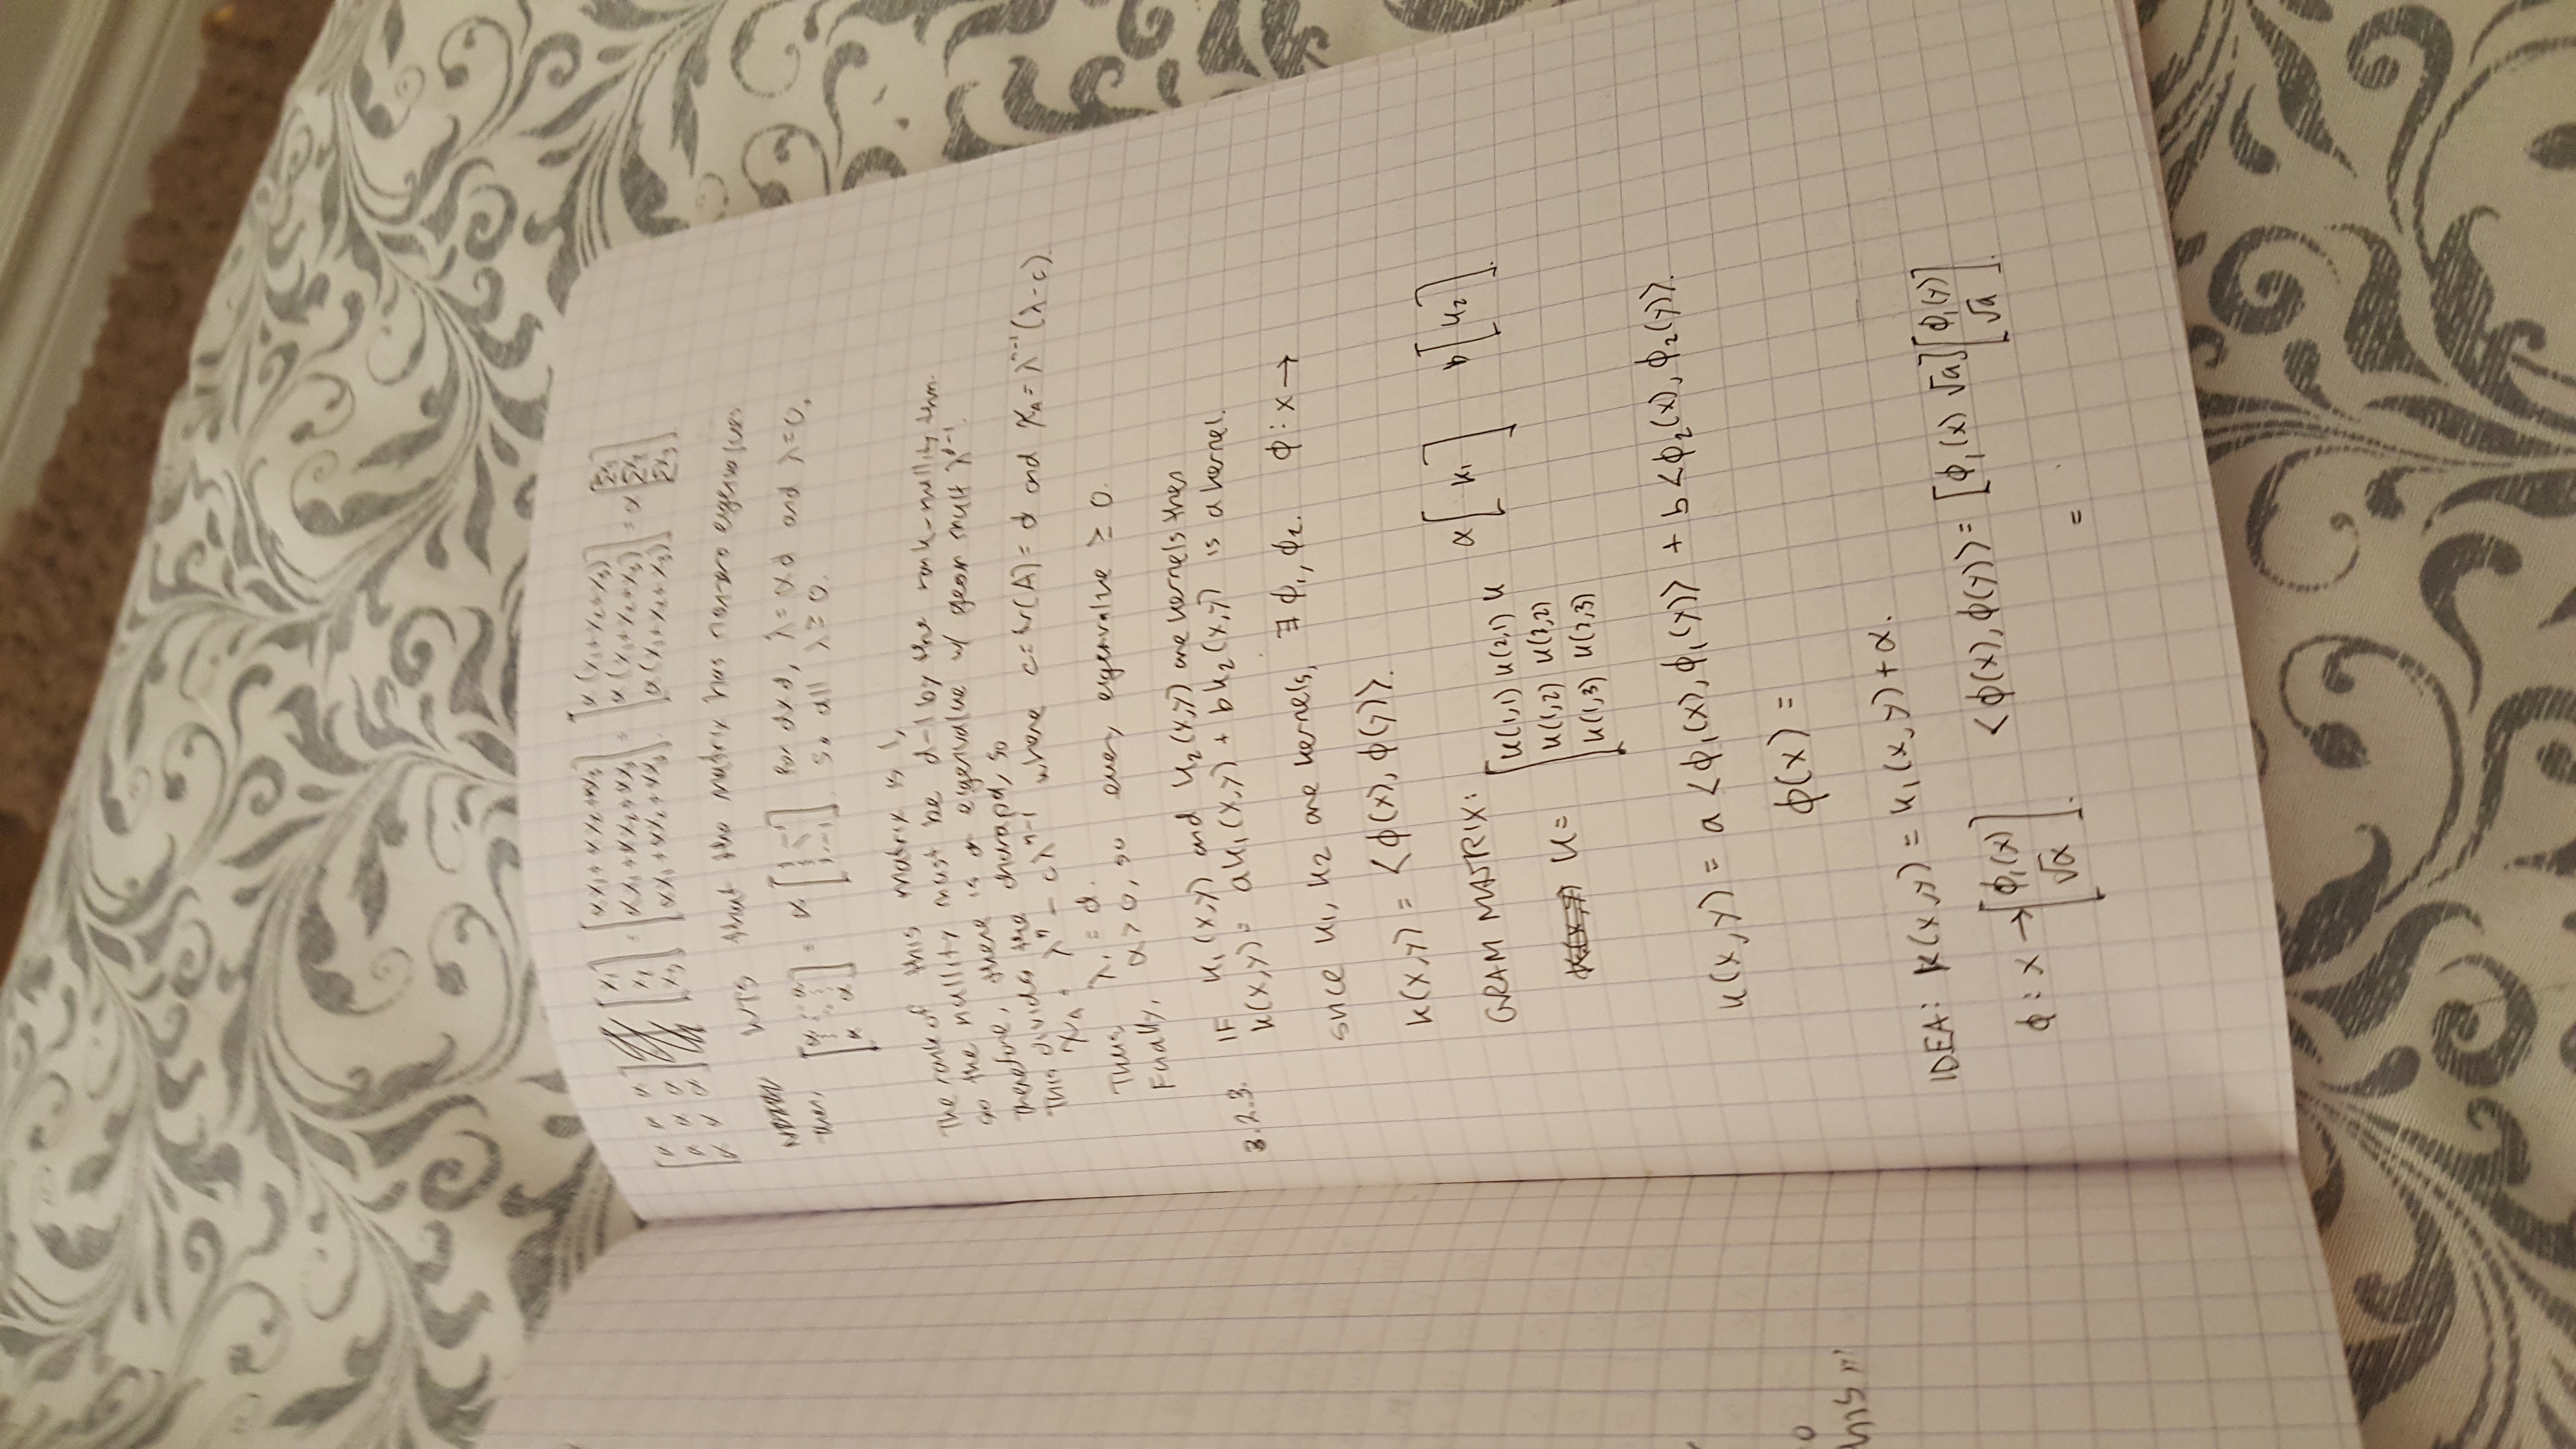 [α α α; α α α; α α α] [x₁; x₂; x₃] = [αx₁+αx₂+αx₃; αx₁+αx₂+αx₃; αx₁+αx₂+αx₃] = [α(x₁+x₂+x₃); α(x₁+x₂+x₃); α(x₁+x₂+x₃)] = α
WTS that the matrix has eigenvalues
then, [α ... α; ⋮ ⋮; α α] = α [1 ... 1; ⋮ ⋱; 1 ... 1] for d×d, λ = αd and λ=0,
so all λ ≥ 0.
The rank of this matrix is 1,
so the nullity must be d-1 by the rank-nullity thm.
therefore, there is an eigenvalue w/ geom mult λᵈ⁻¹.
This divides the charapol, so
χ_A = λⁿ - cλⁿ⁻¹ where c = tr(A) = d and χ_A = λⁿ⁻¹(λ-c).
Thus λ₁ = d.
Finally, α > 0, so every eigenvalue ≥ 0.
3.2.3. IF k₁(x,y) and k₂(x,y) are kernels then
k(x,y) = ak₁(x,y) + bk₂(x,y) is a kernel.
since k₁, k₂ are kernels, ∃ ϕ₁, ϕ₂. ϕ: x →
k(x,y) = <ϕ(x), ϕ(y)>.
GRAM MATRIX: α[ k₁ ] b[ k₂ ].
K = [k(1,1) k(2,1) k
k(1,2) k(2,2)
k(1,3) k(2,3)
k(x,y) = a <ϕ₁(x), ϕ₁(y)> + b <ϕ₂(x), ϕ₂(y)>.
ϕ(x) =
IDEA: k(x,y) = k₁(x,y) + α.
ϕ: x → [ϕ₁(x); √α]. <ϕ(x), ϕ(y)> = [ϕ₁(x) √a][ϕ₁(y); √a].
=
his "